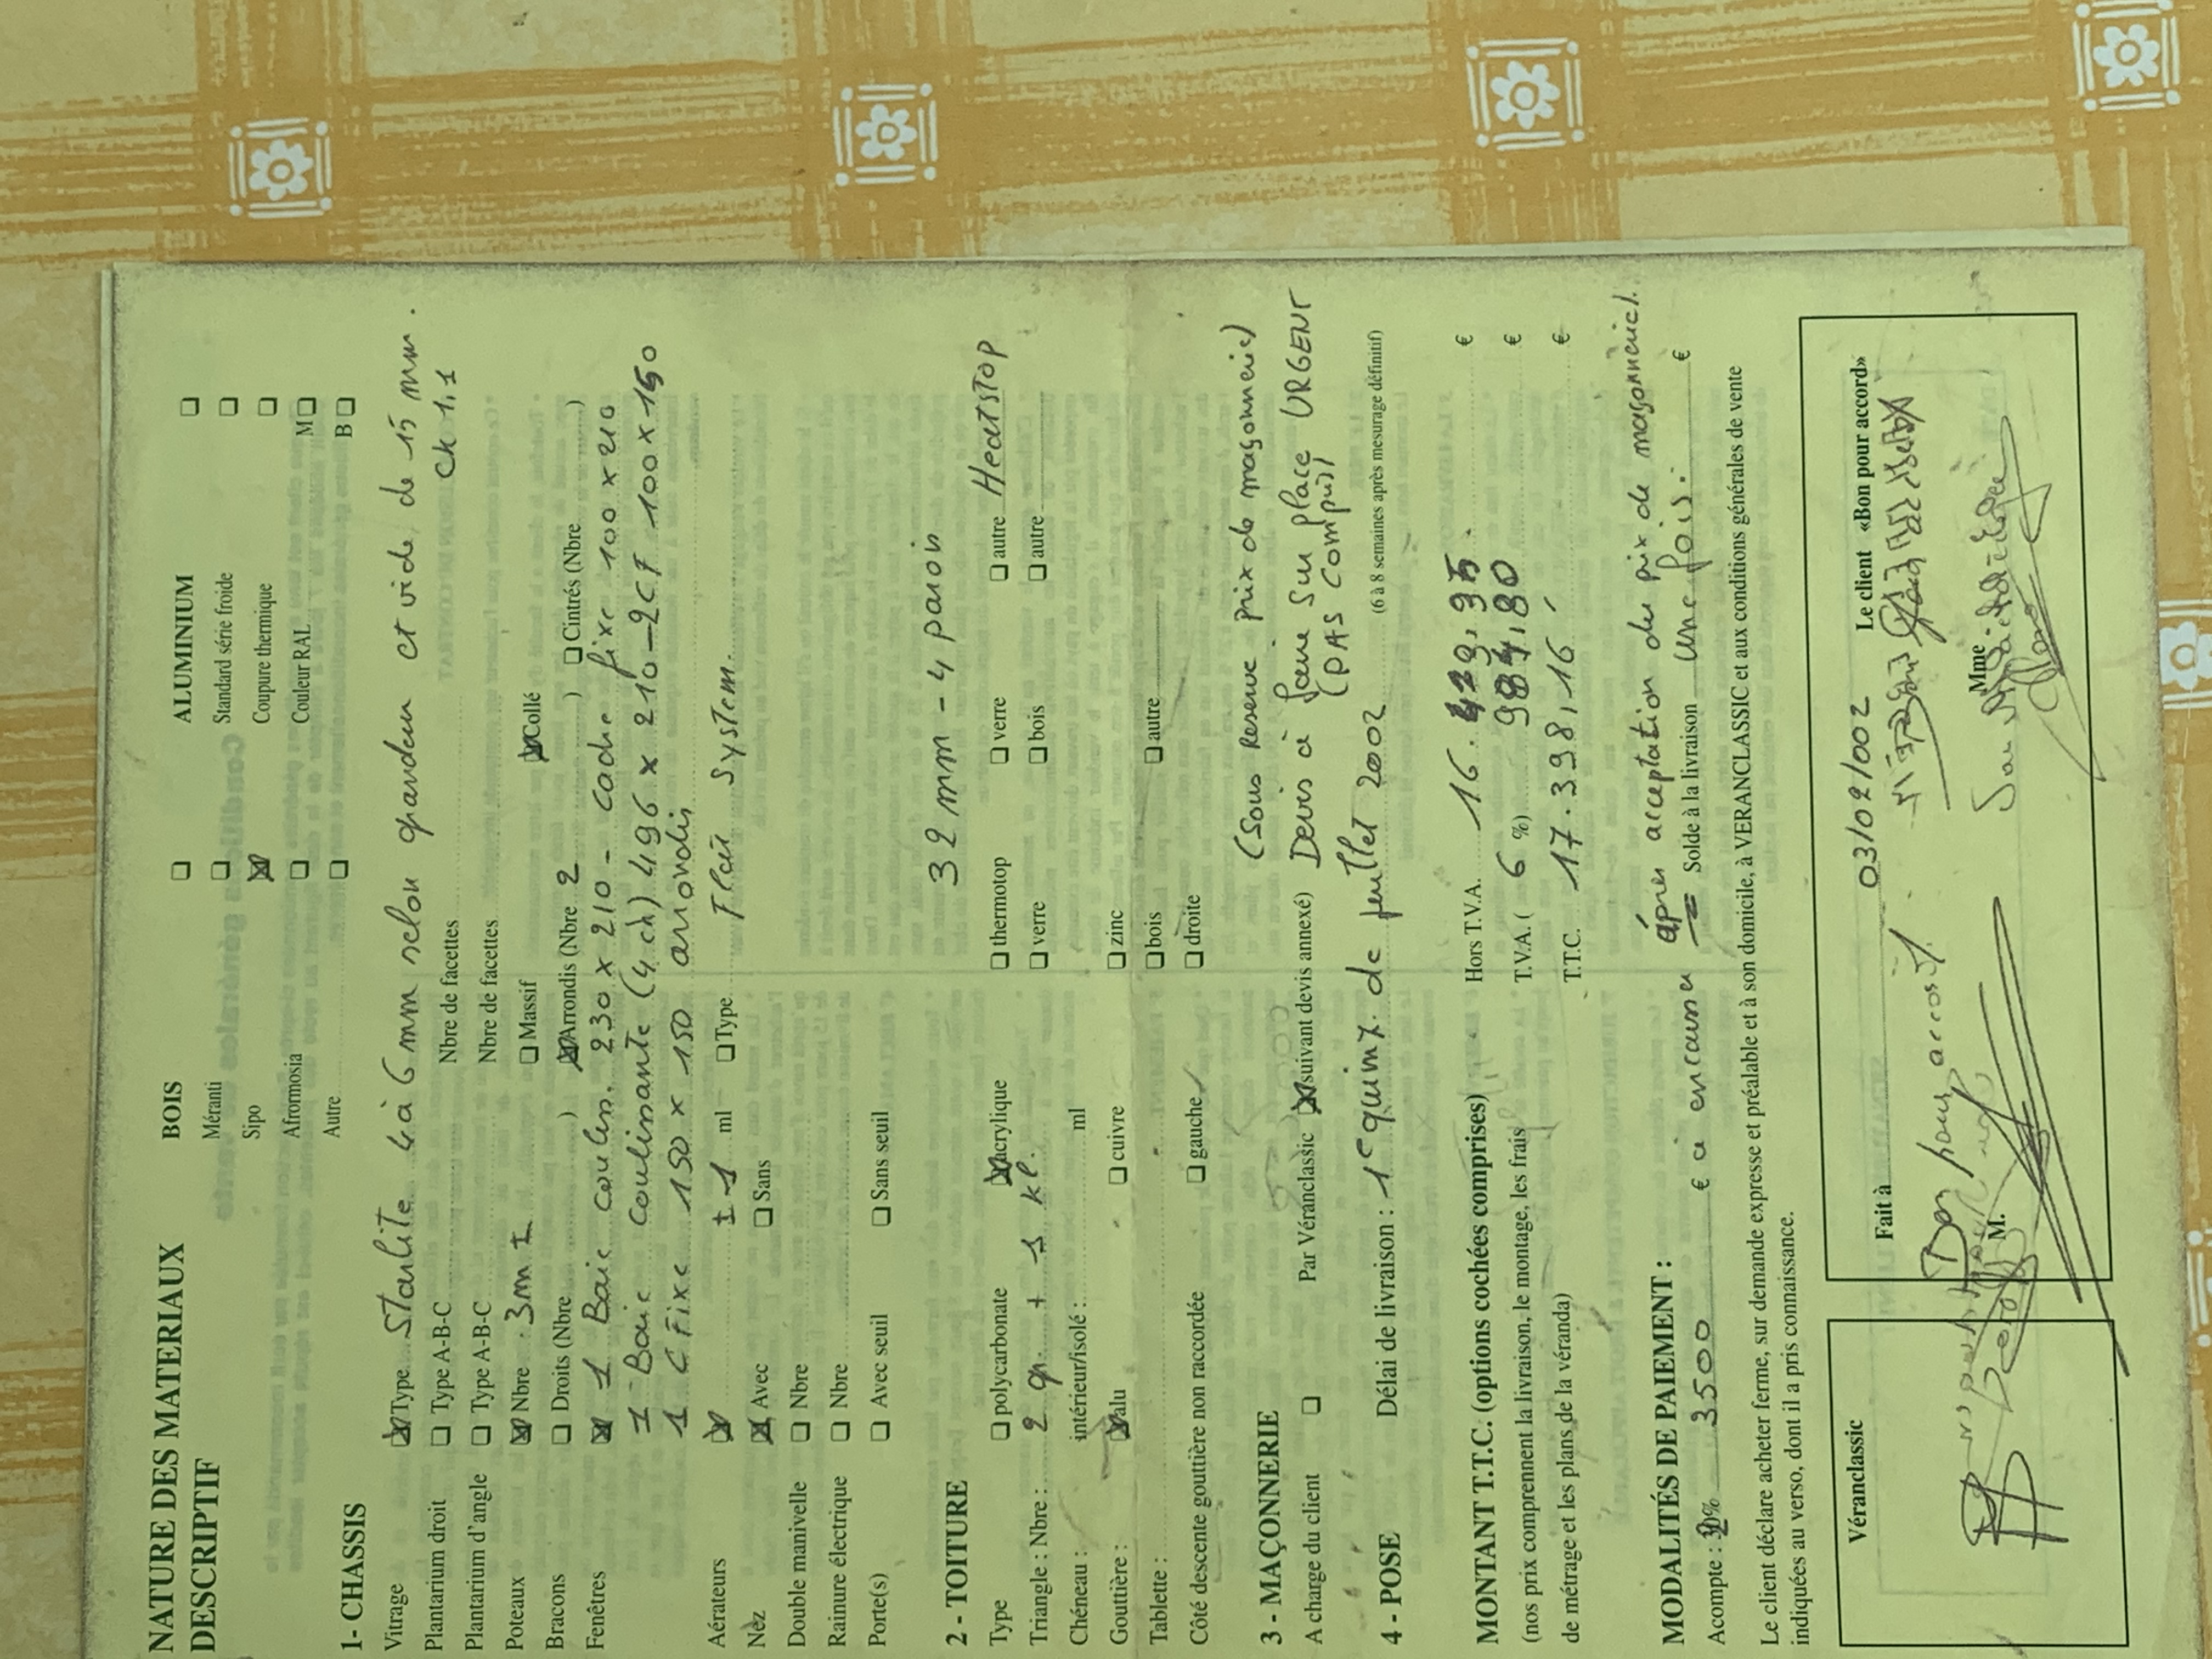 NATURE DES MATERIAUX
DESCRIPTIF
BOIS ALUMINIUM
Méranti ❑ Standard série froide ❑
Sipo ❑ Coupure thermique ❑
Afromosia ☒ Couleur RAL ❑
Autre ❑ M ❑
❑ B ❑
1- CHASSIS
Vitrage ☒ Type Starlite 4 à 6 mm selon grandeur et vide de 15 mm.
Plantarium droit ❑ Type A-B-C Nbre de facettes CK 1,1
Plantarium d'angle ❑ Type A-B-C Nbre de facettes
Poteaux ☒ Nbre 3 ❑ Massif ☒ Collé
Bracons ❑ Droits (Nbre ) ☒ Arrondis (Nbre 2 ) ❑ Cintrés (Nbre )
Fenêtres ☒ 1 Baie coulin. 230 x 210 - cadre fixe 100 x 210
1 Baie coulissante (4 ch) 496 x 210 - 2 CF 100 x 150
1 C Fixe 150 x 150 arrondis
Aérateurs ☒ ± 1 ml ❑ Type Flat System.
Nez ☒ Avec ❑ Sans
Double manivelle ❑ Nbre
Rainure électrique ❑ Nbre
Porte(s) ❑ Avec seuil ❑ Sans seuil
2 - TOITURE 32 mm - 4 parois
Type ❑ polycarbonate ☒ acrylique ❑ thermotop ❑ verre ❑ autre Heatstop
Triangle : Nbre : 2 gr. + 1 kl. ❑ verre ❑ bois ❑ autre
Chéneau : intérieur/isolé : ml
Gouttière : ☒ alu ❑ cuivre ❑ zinc
Tablette : ❑ bois ❑ autre
Côté descente gouttière non raccordée ❑ gauche ❑ droite
3 - MAÇONNERIE (Sous Reserve prix de maçonnerie)
A charge du client ❑ Par Véranclassic ☒ (suivant devis annexé) Devis à faire Sur place URGENT
(PAS Compris)
4 - POSE Délai de livraison : 1e quinz. de juillet 2002 (6 à 8 semaines après mesurage définitif)
MONTANT T.T.C. (options cochées comprises) Hors T.V.A. 16. €
(nos prix comprennent la livraison, le montage, les frais T.V.A. ( 6 %) 984,80 €
de métrage et les plans de la véranda) T.T.C. 17.398,16 €
MODALITÉS DE PAIEMENT : après acceptation du prix de maçonnerie.
Acompte : % 3500 € à encaisser Solde à la livraison Une fois. €
Le client déclare acheter ferme, sur demande expresse et préalable et à son domicile, à VERANCLASSIC et aux conditions générales de vente
indiquées au verso, dont il a pris connaissance.
Véranclassic
Fait à 03/02/002 Le client «Bon pour accord»
Bon pour accord
M. Mme